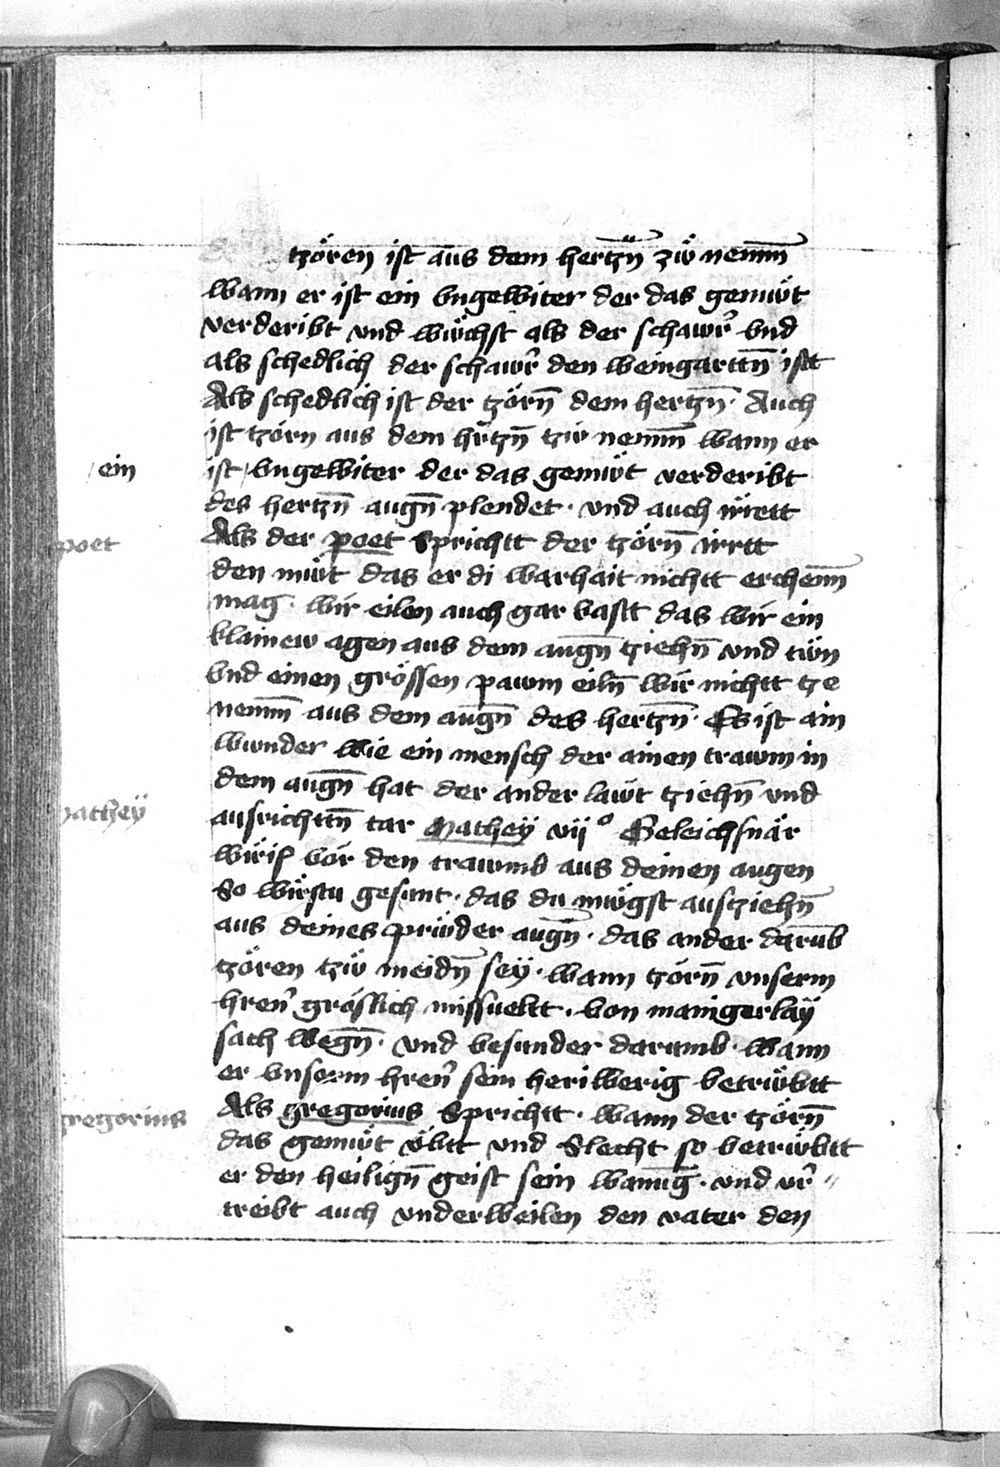 tzören ist aus dem hertzn̄ zẅ nem̄m
wann er ist ein vngewiter der das gemüt
verderibt vnd wüchst als der schawr̄ vnd
als schedlich der schawr̄ den weingarttn̄ istt
Als schedlich ist der tzörn̄ dem hertzn̄ · Auch
ist tzörn aus dem hr̄tzn̄ tzw nem̄m wann er
ein
ist / vngewiter der das gemüt verderibt
des hertzn̄ augn̄ plendet · vnd auch irrett
poet
Als der poet Sprichtt der tzörn̄ irrtt
den müt das er di warhait nichtt erchenn̄
mag · wir eilen auch gar vastt das wir ein
klainew agen aus dem augn̄ tziehn̄ vnd tün
vnd einen grössen pawm eiln̄ wir nichtt tze
nem̄m aus dem augn̄ des hertzn̄ · Es ist ain
wunder wie ein mensch der ainen trawm in
dem augn̄ hat der ander läwt tziehn̄ vnd
mathey
ausrichttn̄ tar Mathey vij° Geleichsnär
wirif vor den trawmb aus deinen augen
So wirstu gesunt · das du mügst austziehn̄
aus deines prüder augn̄ · das ander darūb
tzören tzẅ meidn̄ sey · wann tzörn̄ vnserm
hren̄ gröslich missuellt · von manigerlay
sach wegn̄ · vnd besunder darumb · wann
er vnserm hren̄ sein heriwerig betrübtt
gregorius
Als gregorius Sprichtt · wann der tzörn̄
das gemüt übtt vnd Slecht so betrübtt
er den heilign̄ geist sein wanūg · vnd vr̄
treibt auch vnderweilen den vater den